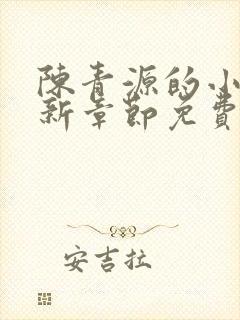 陳青源的小
新章節免費
安吉拉